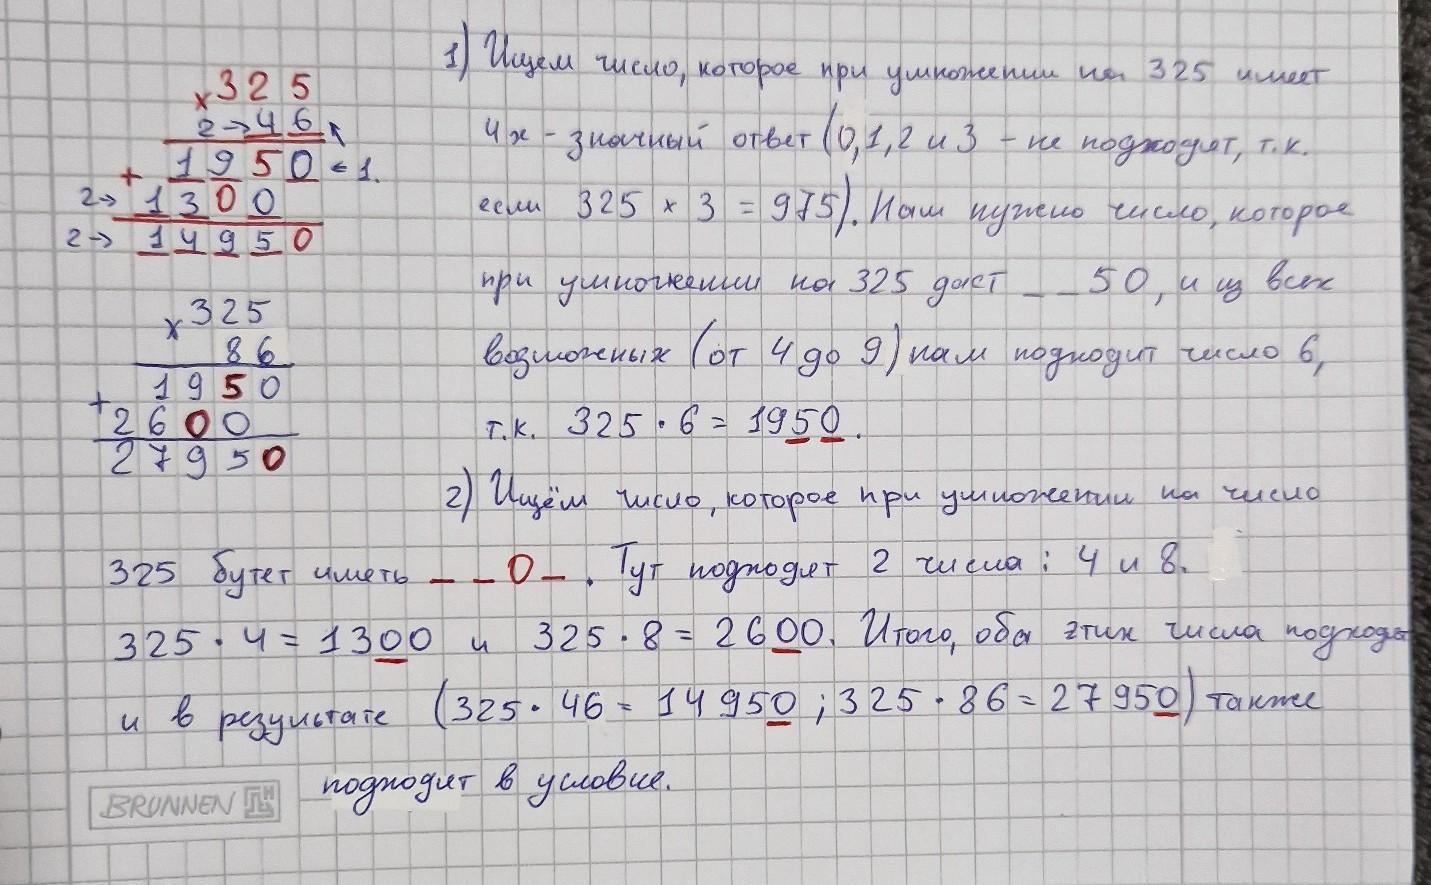 × 325
2→ 46
+ 1950 ← 1.
2→ 1300
2→ 14950
× 325
86
+ 1950
2600
27950
1) Ищем число, которое при умножении на 325 имеет
4х-значный ответ (0,1,2 и 3 - не подходят, т.к.
если 325 × 3 = 975). Нам нужно число, которое
при умножении на 325 даст _ _ 50, и из всех
возможных (от 4 до 9) нам подходит число 6,
т.к. 325 · 6 = 1950.
2) Ищём число, которое при умножении на число
325 бутет иметь _ _ 0 _ . Тут подходят 2 числа: 4 и 8.
325 · 4 = 1300 и 325 · 8 = 2600. Итого, оба этих числа подходят
и в результате (325 · 46 = 14950 ; 325 · 86 = 27950) также
подходит в условие.
BRUNNEN